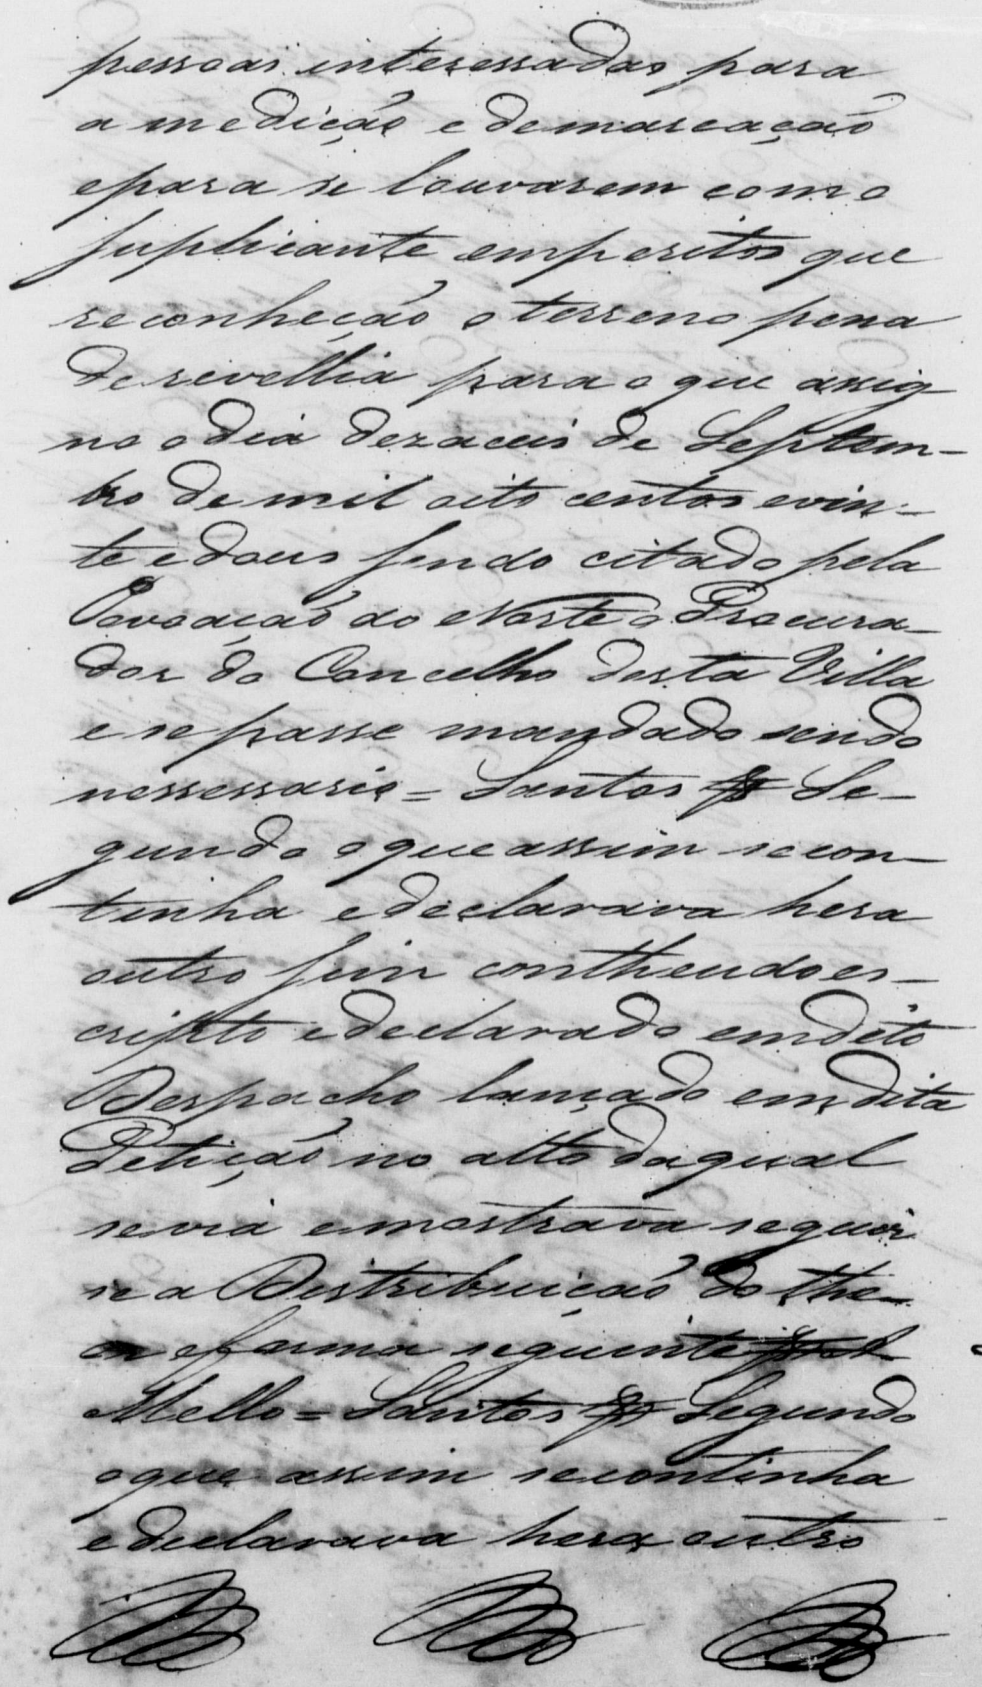 pessoas interessadas para
a medição e demarcação
epara se louvarem com o
suplicante emperitos que
reconheção o terreno pena
derevellia para o que assig
no o dia dezaceis de Septem-
bro de mil oito centos evin-
te edous sendo citado pela
Povoação do Norte o Procura-
dor do Concelho desta Villa
e se passe mandado sendo
nessessario = Santos Se-
gundo oqueassim secon-
tinha edeclarava hera
outro sim contheudoes-
cripto edeclarado emdito
Despacho lançado emdita
Petição no alto daqual
sevia emostrava seguir
se a Destribuição do the-
or eforma seguinte
Mello = Santos Segundo
oque assim secontinha
edeclarava hera outro